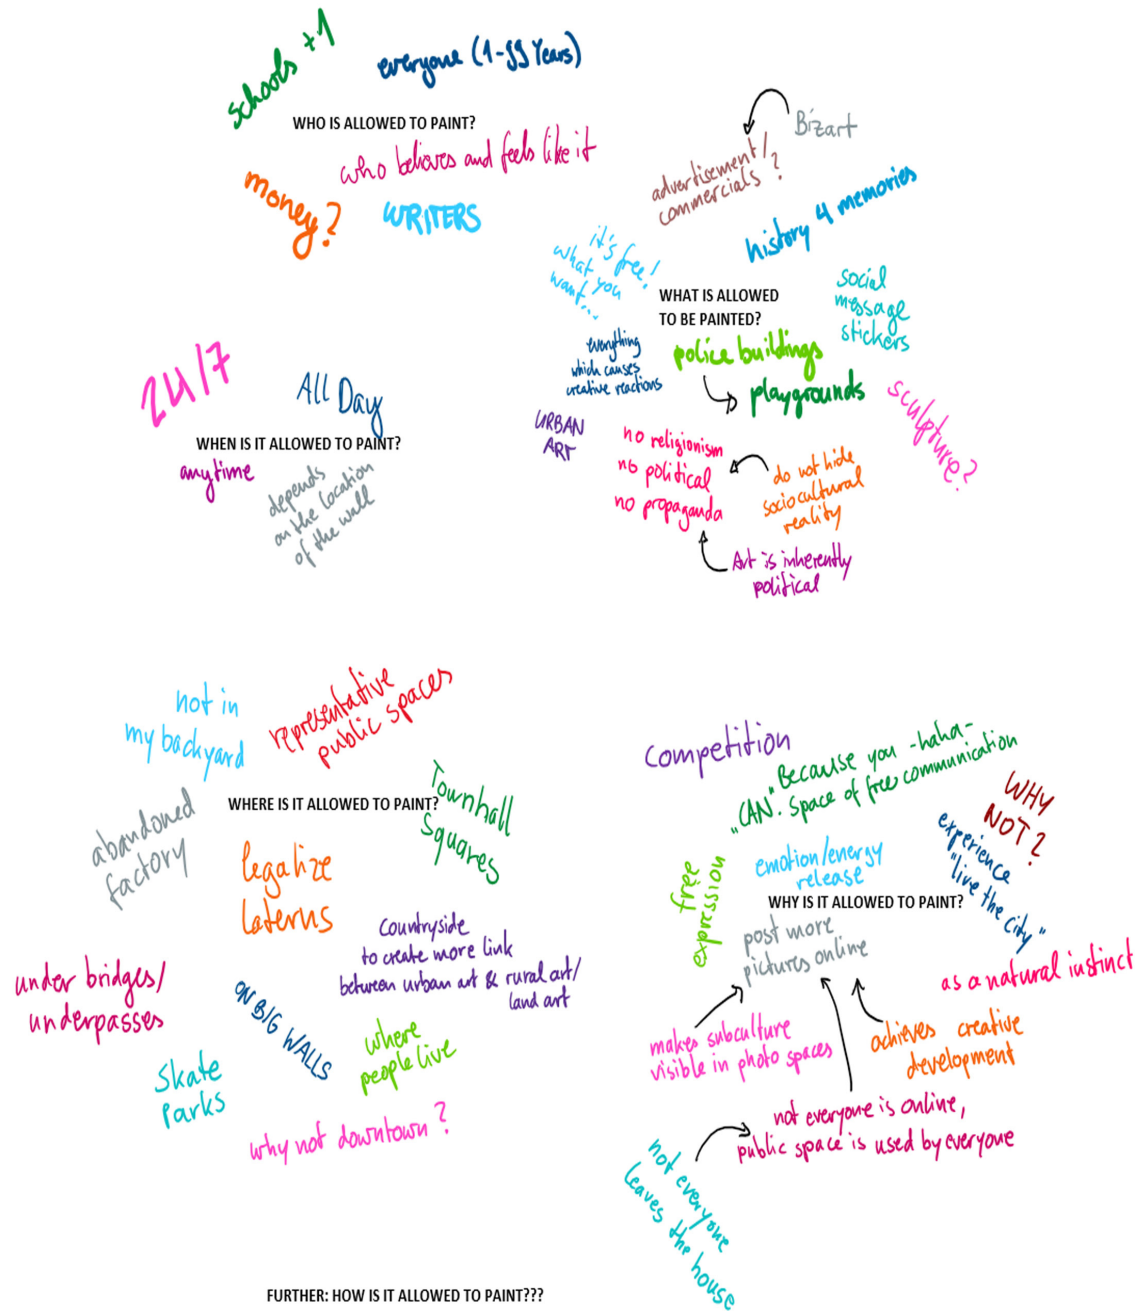 schools +1
everyone (1-99 Years)
WHO IS ALLOWED TO PAINT?
who believes and feels like it
money?
WRITERS
Bizart
advertisement/
commercials?
history & memories
it's free!
what you
want...
WHAT IS ALLOWED
TO BE PAINTED?
social
message
stickers
everything
which causes
creative reactions
police buildings
playgrounds
sculpture?
URBAN
ART
no religionism
no political
no propaganda
do not hide
sociocultural
reality
Art is inherently
political
24/7
All Day
WHEN IS IT ALLOWED TO PAINT?
anytime
depends
on the location
of the wall
not in
my backyard
representative
public spaces
WHERE IS IT ALLOWED TO PAINT?
Townhall
Squares
abandoned
factory
legalize
laterns
Countryside
to create more link
between urban art & rural art/
land art
under bridges/
underpasses
ON BIG WALLS
where
people live
Skate
Parks
why not downtown?
Competition
Because you -haha-
"CAN". Space of free communication
WHY
NOT?
experience
"live the city"
emotion/energy
release
free
expression
WHY IS IT ALLOWED TO PAINT?
post more
pictures online
as a natural instinct
makes subculture
visible in photo spaces
achieves creative
development
not everyone is online,
public space is used by everyone
not everyone
leaves the house
FURTHER: HOW IS IT ALLOWED TO PAINT???